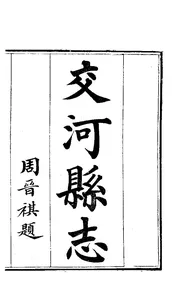 交河縣志
周晉祺題